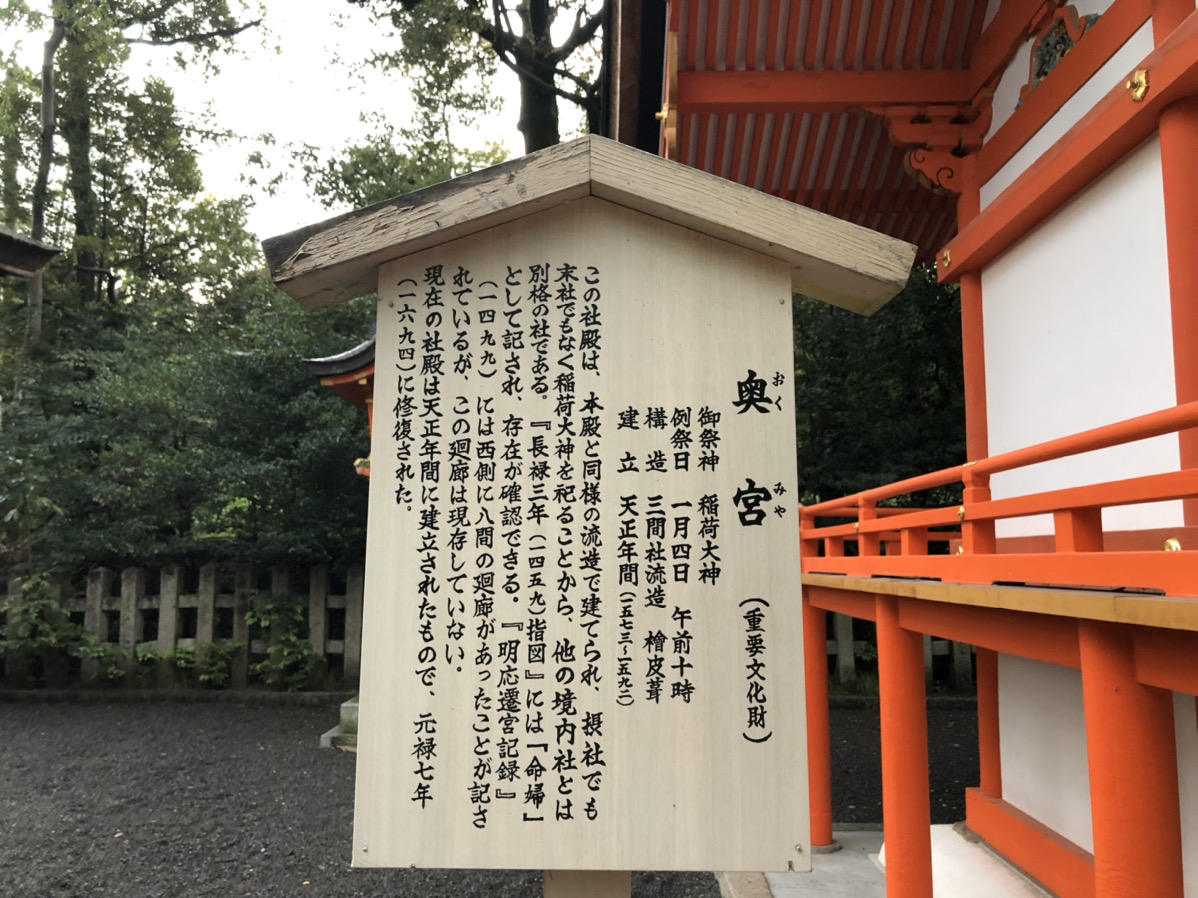 奥宮
おくみや
（重要文化財）
御祭神 稲荷大神
例祭日 一月四日 午前十時
構造 三間社流造 檜皮葺
建立 天正年間（一五七三〜一五九二）
この社殿は、本殿と同様の流造で建てられ、摂社でも
末社でもなく稲荷大神を祀ることから、他の境内社とは
別格の社である。『長禄三年（一四五九）指図』には「命婦」
として記され、存在が確認できる。『明応遷宮記録』
（一四九九）には西側に八間の廻廊があったことが記さ
れているが、この廻廊は現存していない。
現在の社殿は天正年間に建立されたもので、元禄七年
（一六九四）に修復された。